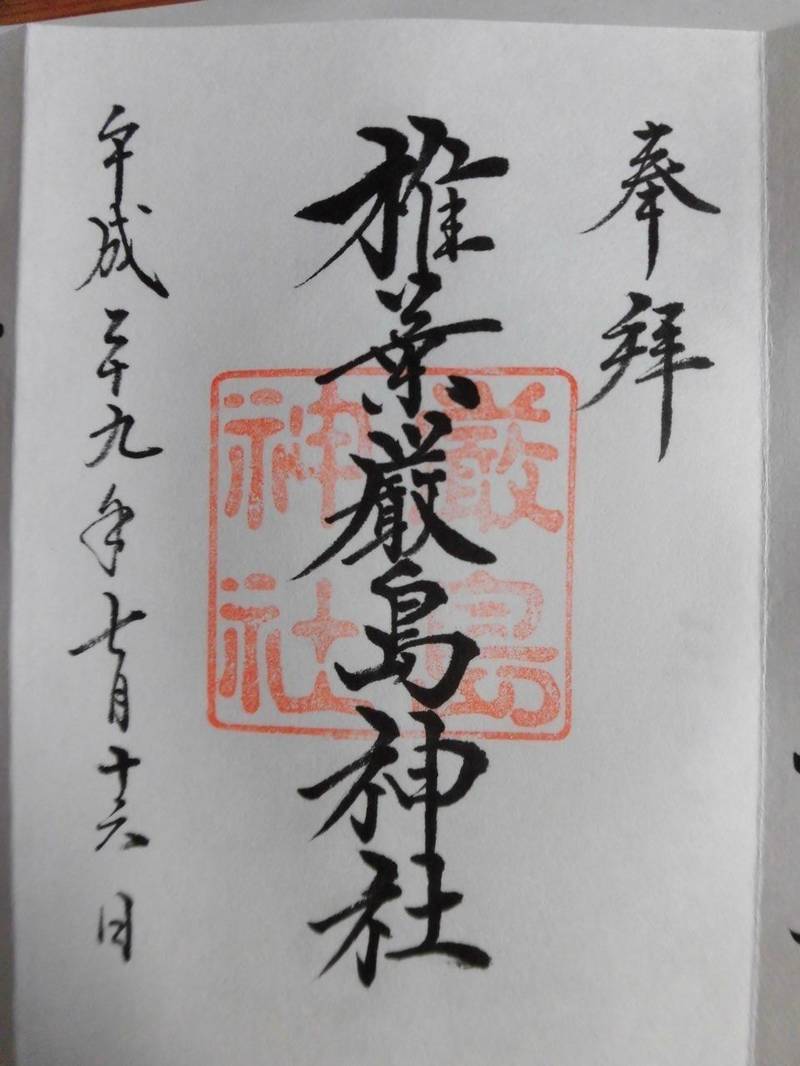 奉拝
椎葉厳島神社
平成二十九年七月十六日
厳島
神社